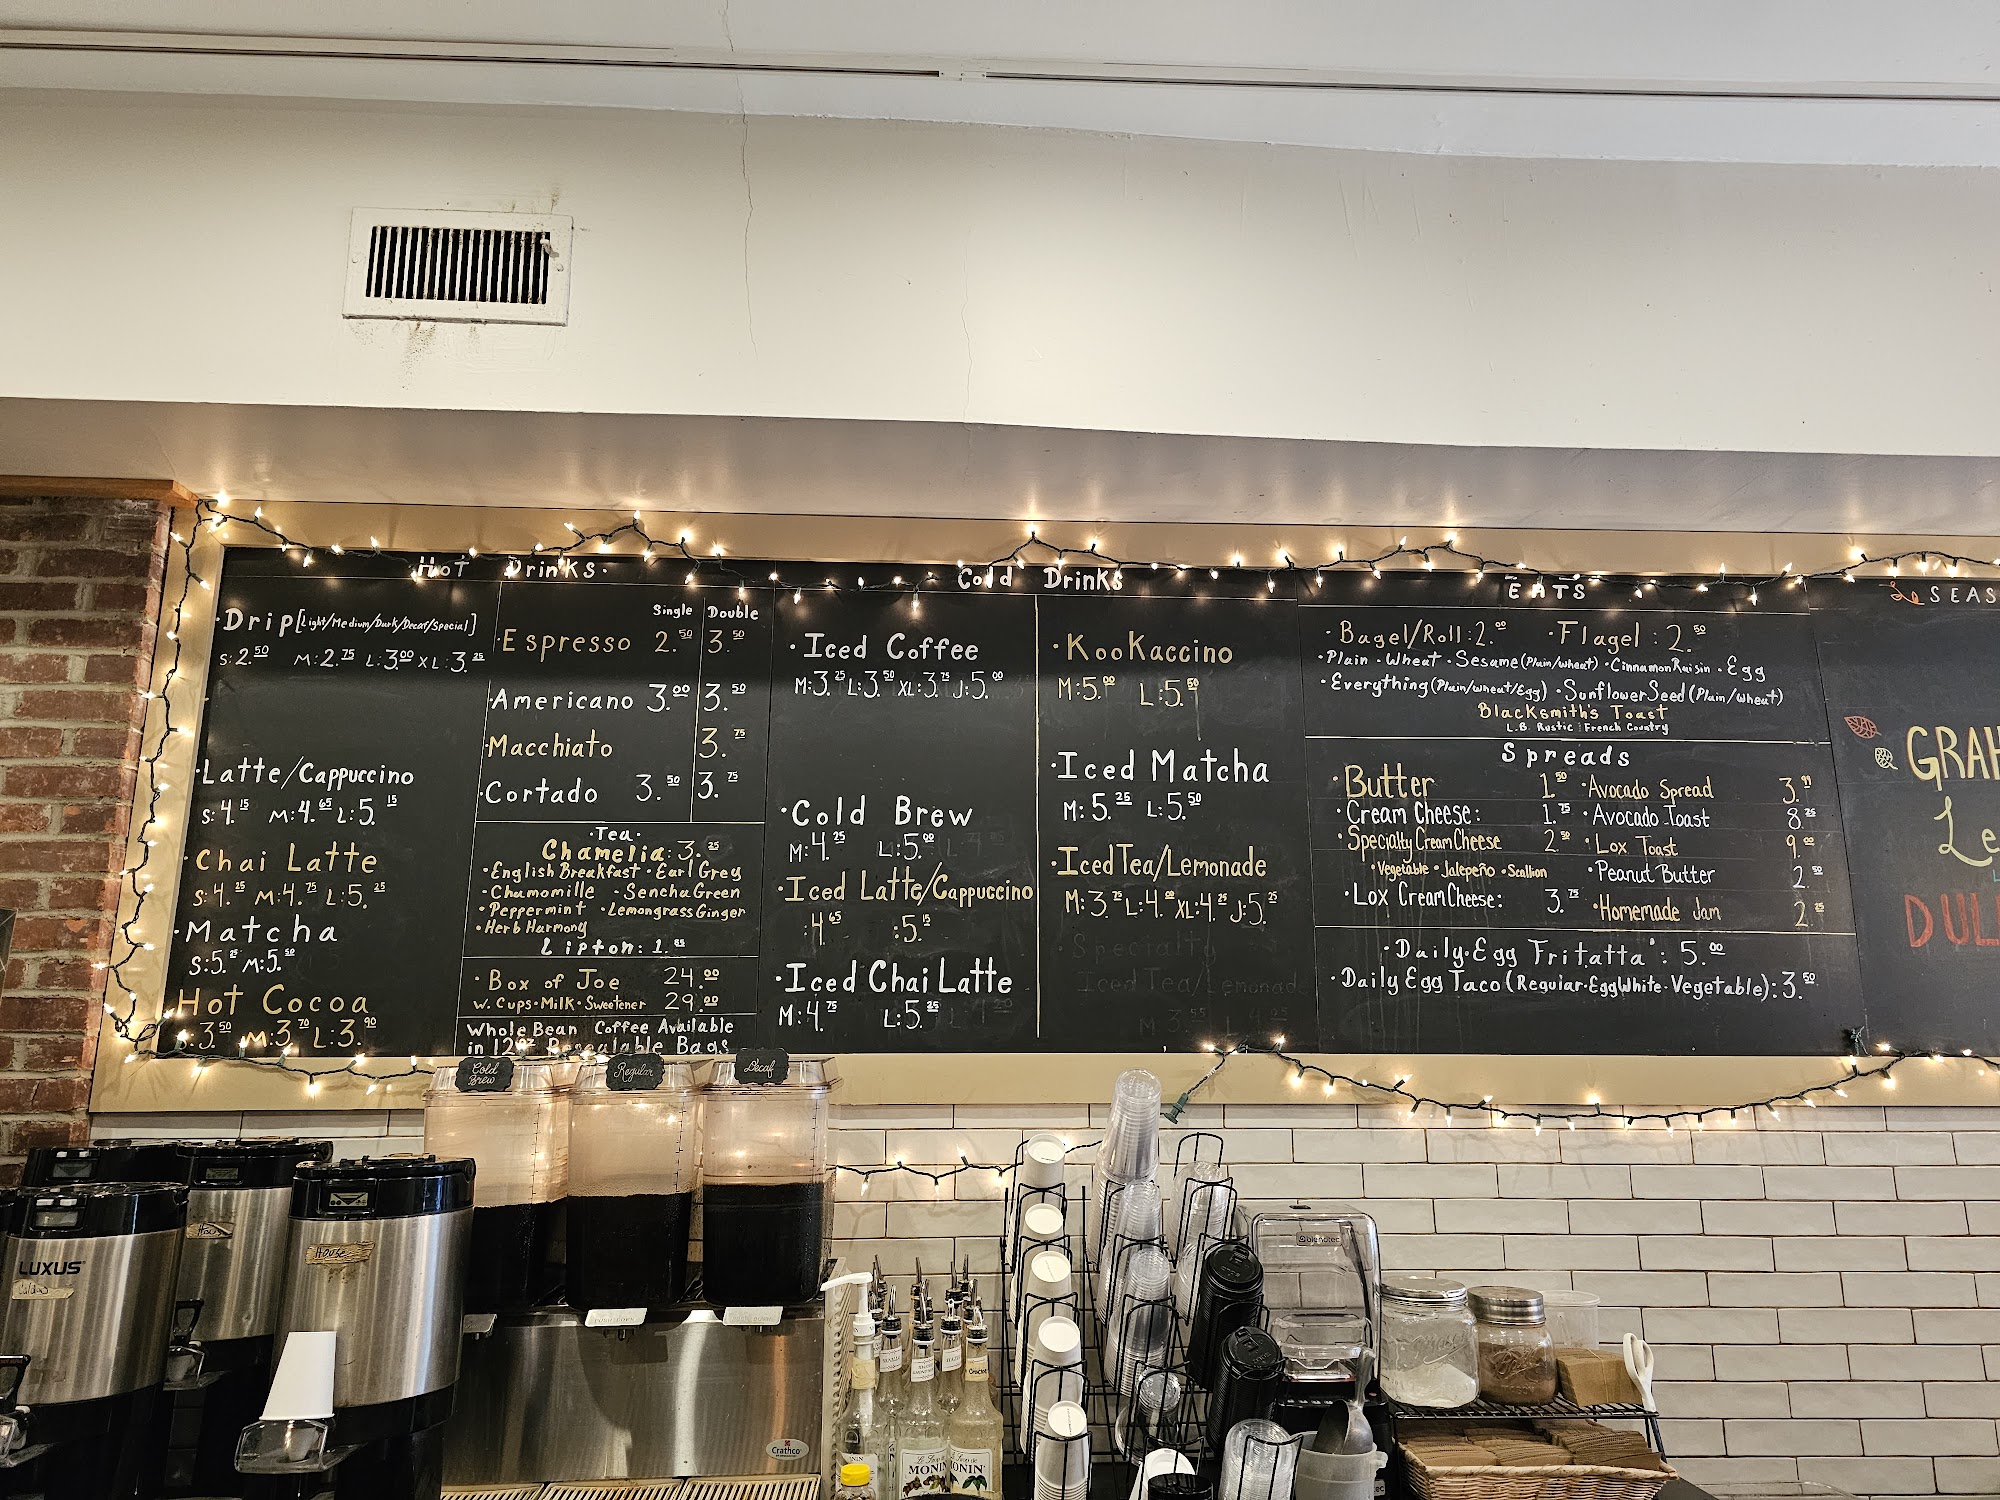 Hot Drinks.
·Drip [Light/Medium/Dark/Decaf/Special]
S:2.50 M:2.75 L:3.00 XL:3.25
·Latte/Cappuccino
S:4.15 M:4.65 L:5.15
·Chai Latte
S:4.25 M:4.75 L:5.25
·Matcha
S:5.25 M:5.50
Hot Cocoa
S:3.50 M:3.70 L:3.90
Single Double
·Espresso 2.50 3.50
·Americano 3.00 3.50
·Macchiato 3.75
·Cortado 3.50 3.75
·Tea·
Chamelia: 3.25
·English Breakfast ·Earl Grey
·Chamomille ·Sencha Green
·Peppermint ·Lemongrass Ginger
·Herb Harmony
Lipton: 1.85
·Box of Joe 24.00
w. Cups·Milk·Sweetener 29.00
Whole Bean Coffee Available
in 12oz Resealable Bags
Cold Drinks
·Iced Coffee
M:3.25 L:3.50 XL:3.75 J:5.00
·Cold Brew
M:4.25 L:5.00
·Iced Latte/Cappuccino
:4.65 :5.15
·Iced Chai Latte
M:4.75 L:5.25
·KooKaccino
M:5.00 L:5.50
·Iced Matcha
M:5.25 L:5.50
·Iced Tea/Lemonade
M:3.75 L:4.00 XL:4.25 J:5.25
Specialty
Iced Tea/Lemonade
EATS
·Bagel/Roll:2.00 ·Flagel:2.50
·Plain ·Wheat ·Sesame (Plain/Wheat) ·Cinnamon Raisin ·Egg
·Everything (Plain/Wheat/Egg) ·Sunflower Seed (Plain/Wheat)
Blacksmith's Toast
L.B. Rustic : French Country
Spreads
·Butter 1.50
·Cream Cheese: 1.75
·Specialty Cream Cheese 2.50
·Vegetable ·Jalepeño ·Scallion
·Lox Cream Cheese: 3.75
·Avocado Spread 3.99
·Avocado Toast 8.25
·Lox Toast 9.00
·Peanut Butter 2.50
·Homemade Jam 2.25
·Daily·Egg Fritatta: 5.00
·Daily Egg Taco (Regular·Egg White·Vegetable): 3.50
SEAS
GRAH
Le
DUL
Cold
Brew
Regular
Decaf
LUXUS
House
Crathco
blendtec
MONIN
MONIN